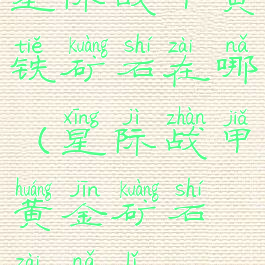 tiě kuàng shí zài nǎ
铁矿石在哪
xīng jì zhàn jiǎ
(星际战甲
huáng jīn kuàng shí
黄金矿石
zài nǎ lǐ